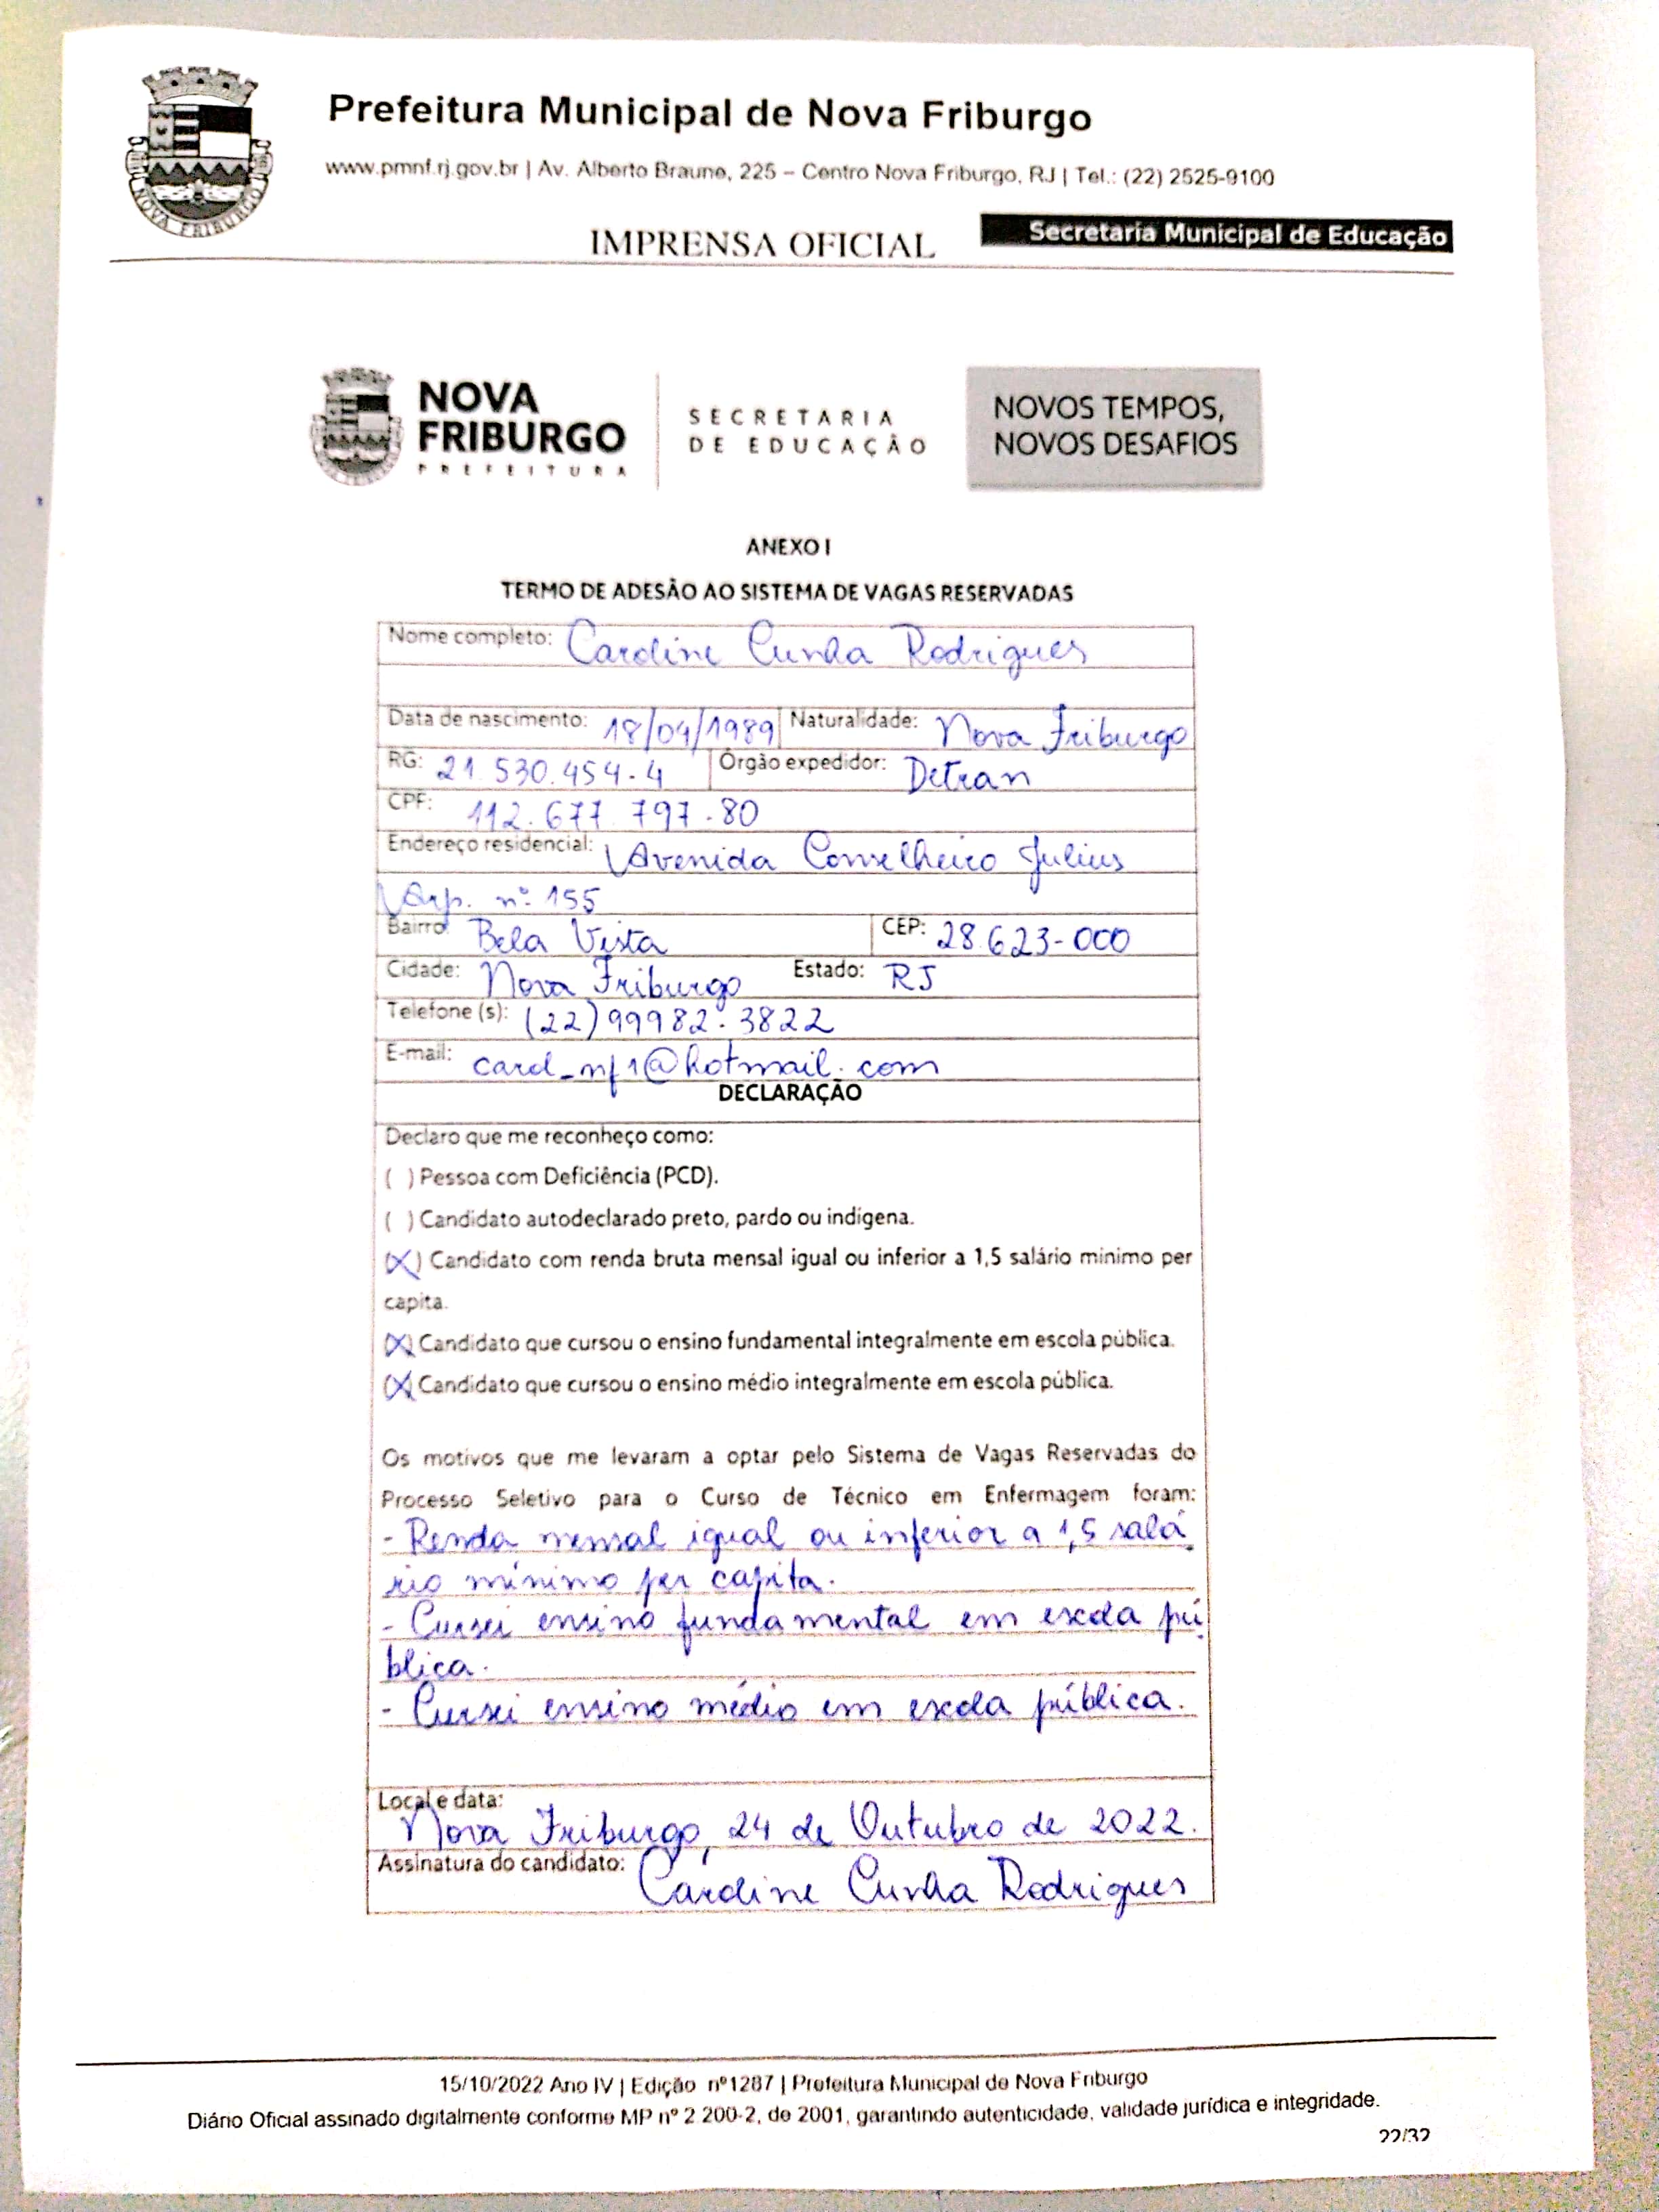 NOVA FRIBURGO
Prefeitura Municipal de Nova Friburgo
www.pmnf.rj.gov.br | Av. Alberto Braune, 225 – Centro Nova Friburgo, RJ | Tel.: (22) 2525-9100
IMPRENSA OFICIAL
Secretaria Municipal de Educação
NOVA
FRIBURGO
PREFEITURA
SECRETARIA
DE EDUCAÇÃO
NOVOS TEMPOS,
NOVOS DESAFIOS
ANEXO I
TERMO DE ADESÃO AO SISTEMA DE VAGAS RESERVADAS
Nome completo: Caroline Cunha Rodrigues
Data de nascimento: 18/04/1989 Naturalidade: Nova Friburgo
RG: 21.530.454-4 Órgão expedidor: Detran
CPF: 112.677.797-80
Endereço residencial: Avenida Conselheiro Julius
Arp. nº 155
Bairro: Bela Vista CEP: 28.623-000
Cidade: Nova Friburgo Estado: RJ
Telefone (s): (22) 99982-3822
E-mail: carol_nf1@hotmail.com
DECLARAÇÃO
Declaro que me reconheço como:
( ) Pessoa com Deficiência (PCD).
( ) Candidato autodeclarado preto, pardo ou indígena.
(X) Candidato com renda bruta mensal igual ou inferior a 1,5 salário mínimo per
capita.
(X) Candidato que cursou o ensino fundamental integralmente em escola pública.
(X) Candidato que cursou o ensino médio integralmente em escola pública.
Os motivos que me levaram a optar pelo Sistema de Vagas Reservadas do
Processo Seletivo para o Curso de Técnico em Enfermagem foram:
- Renda mensal igual ou inferior a 1,5 salá
rio mínimo per capita.
- Cursei ensino fundamental em escola pú
blica.
- Cursei ensino médio em escola pública.
Local e data:
Nova Friburgo, 24 de Outubro de 2022.
Assinatura do candidato: Caroline Cunha Rodrigues
15/10/2022 Ano IV | Edição nº1287 | Prefeitura Municipal de Nova Friburgo
Diário Oficial assinado digitalmente conforme MP nº 2.200-2, de 2001, garantindo autenticidade, validade jurídica e integridade.
22/32